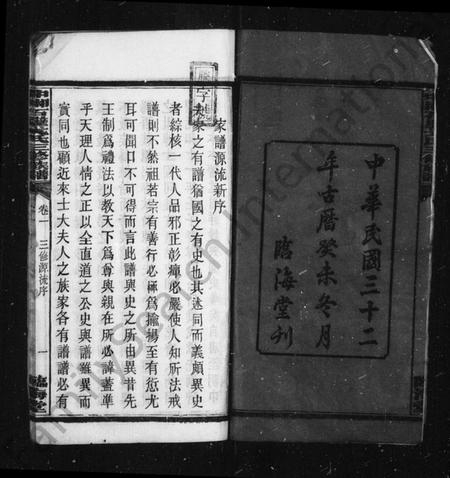 中華民國三十二
年古曆癸未冬月
臨海堂刊
家譜源流新序
夫家之有譜猶國之有史也其述同而義頗異史
者綜核一代人品邪正彰癉必嚴使人知所法戒
譜則不然祖若宗有善行必極為揄揚至有愆尤
耳可聞口不可得而言此譜與史之所由異昔先
王制為禮法以教天下為尊與親在所必諱蓋準
乎天理人情之正以全直道之公史與譜雖異而
實同也顧近來士大夫人之族家各有譜譜必有
卷一 三修源流序 一
臨海堂
FamilySearch International